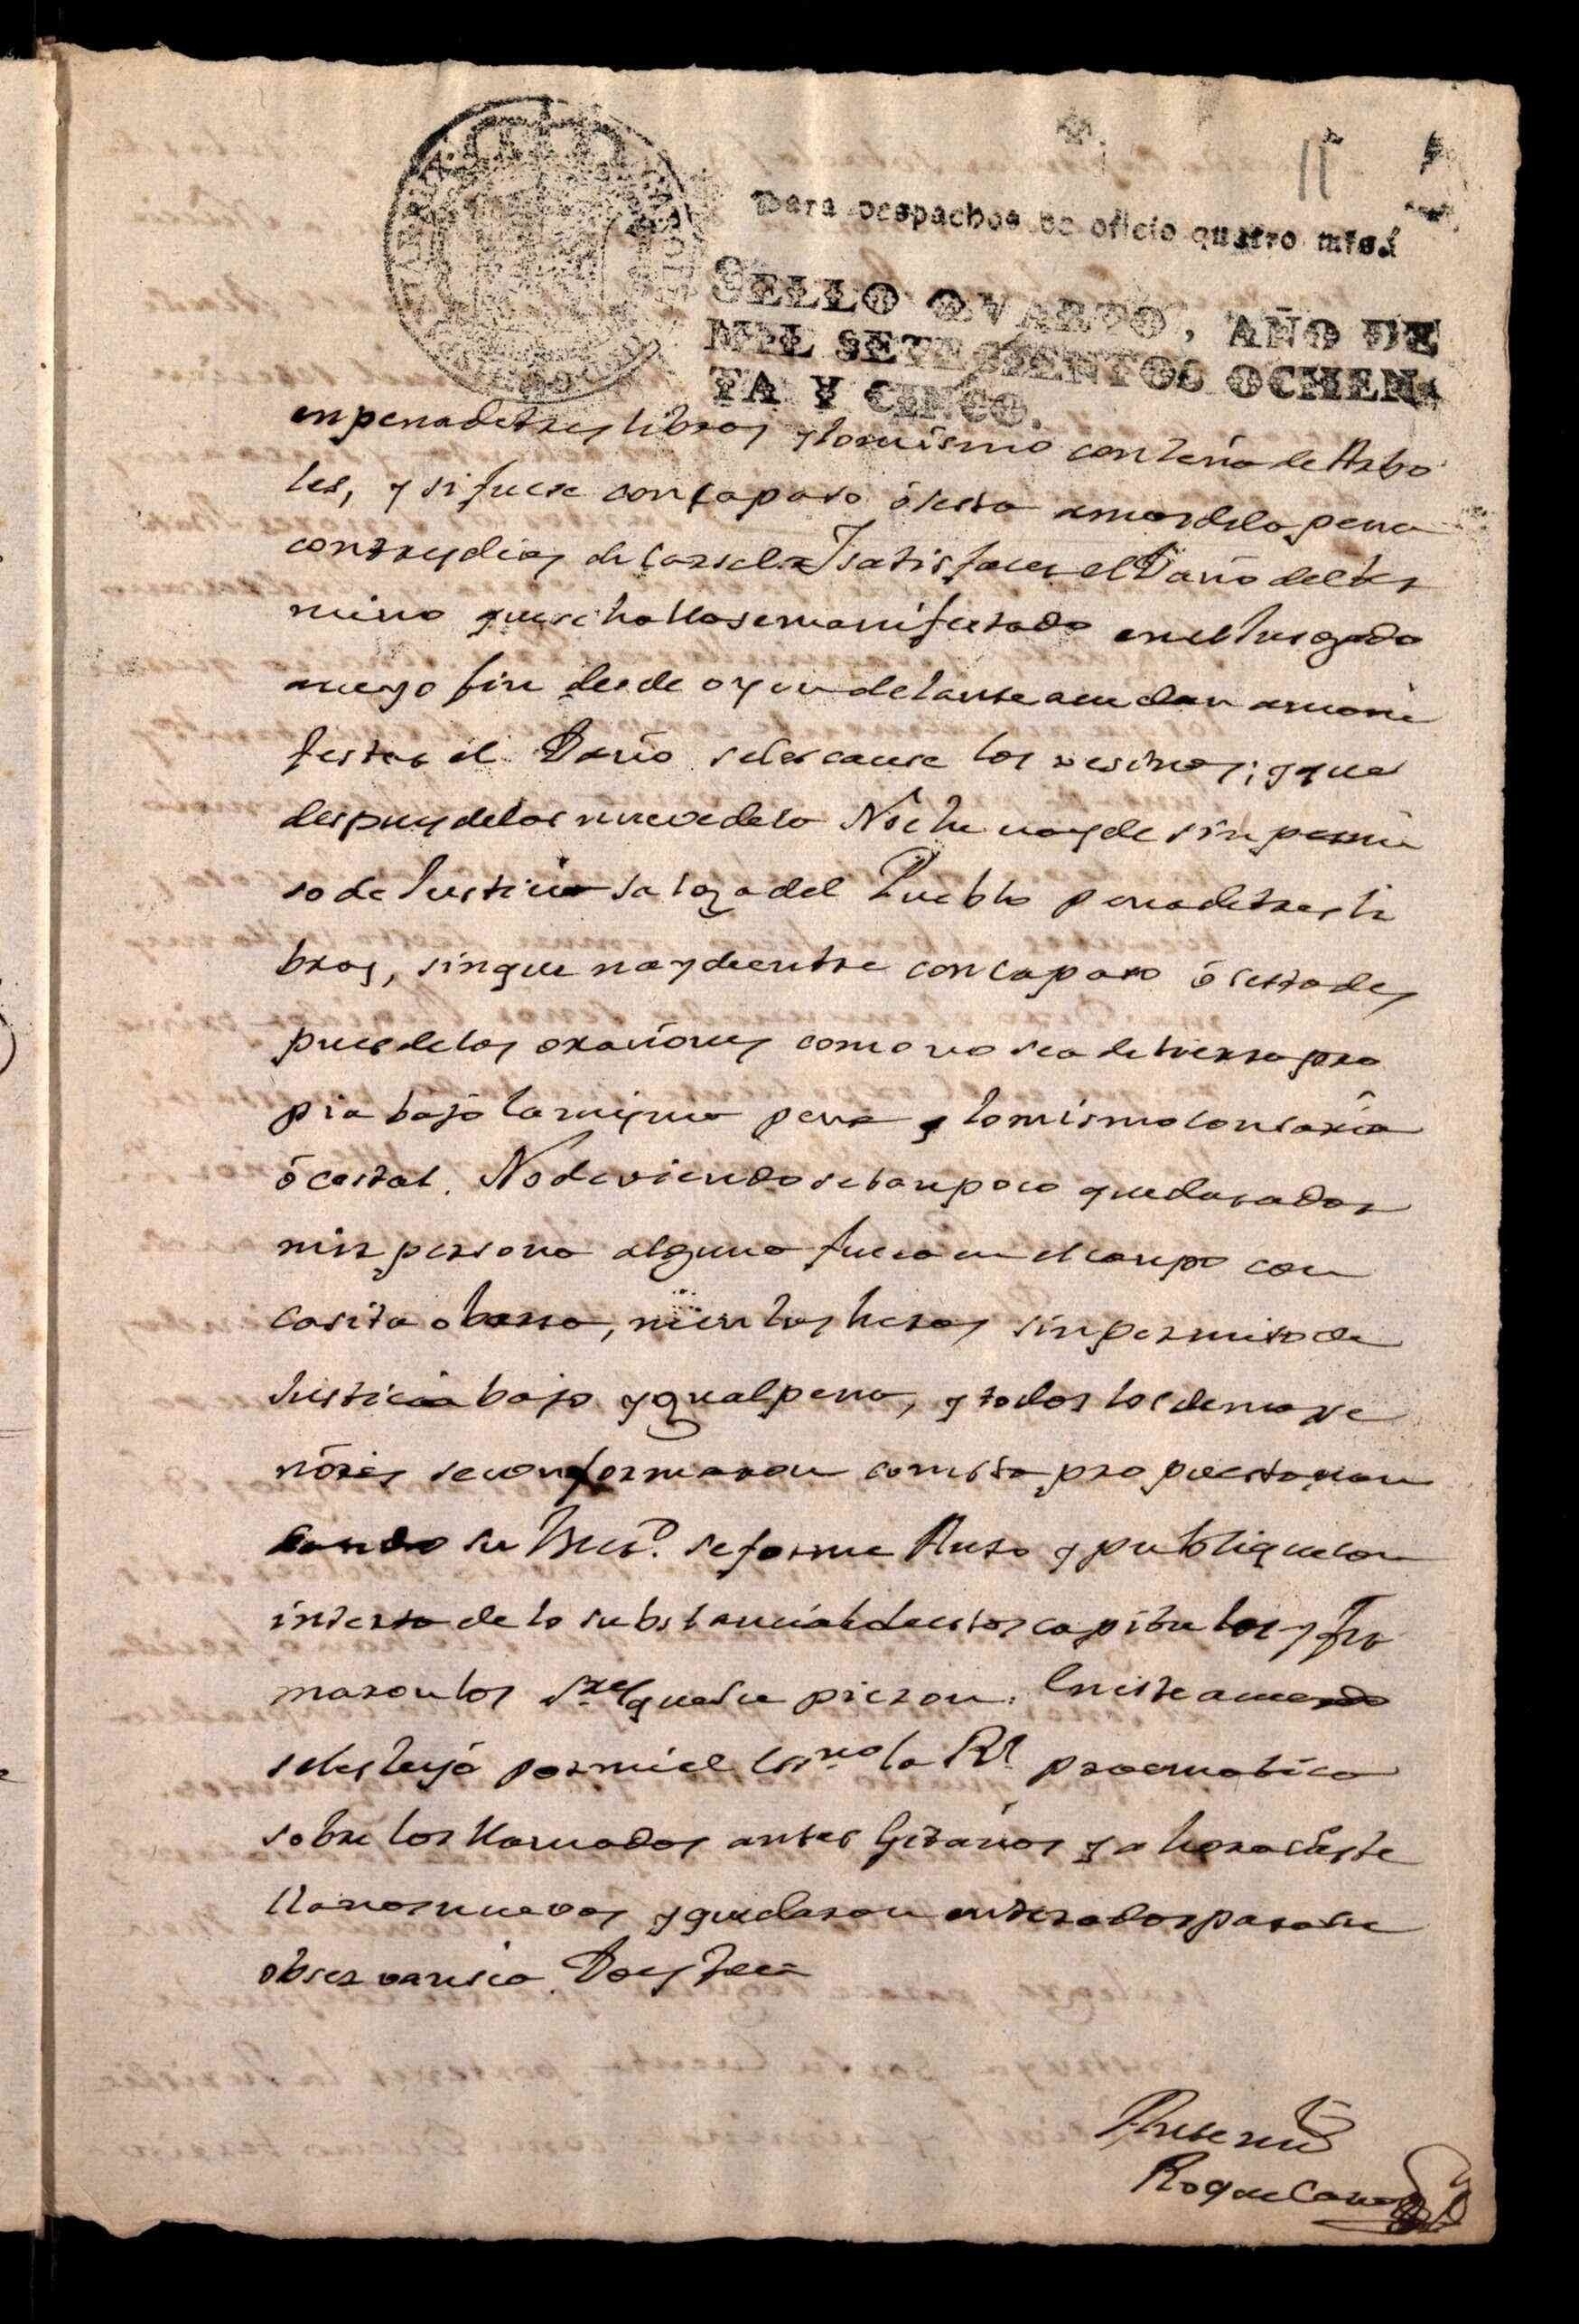 11
Para despachos de oficio quatro mrs.
SELLO QVARTO, AÑO DE
MIL SETECIENTOS OCHEN-
TA Y CINCO.
en pena de tres libras y lo mismo con leña de Arbo
les, y si fuese con capaso ó sesta amas dela pena
con tres dias de Carsel y satisfacer el Daño del ter
mino que se hallase manifestado en el Jusgado
a cuyo fin desde oy en delante acudan a mani
festar el Daño se les cause los vesinos; y que
despues de las nueve dela Noche nayde sin permi
so de Justicia salga del Pueblo pena de tres li
bras, sin que nayde entre con capaso ó sesta des
pues de las oraciones como no sea de tierra pro
pia bajo la misma pena y lo mismo con
ó costal. No deviendose tampoco quedar a dor
mir persona alguna fuera en el campo con
casita o barraca, ni en las heras sin permiso de
Justicia bajo ygual pena, y todos los demas se
ñores se conformaron con esta propuesta man
dando su Mrd. se forme Auto y publique con
inserto de lo substancial de estos capitulos y fir
maron los Sres que supieron. En este acuerdo
se les leyó por mi el Essno la Rl. pracmatica
sobre los llamados antes Gitanos y ahora Caste
llanos nuevos y quedaron enterados para su
observansia. Doy fee =
Ante mi
Roque Cano